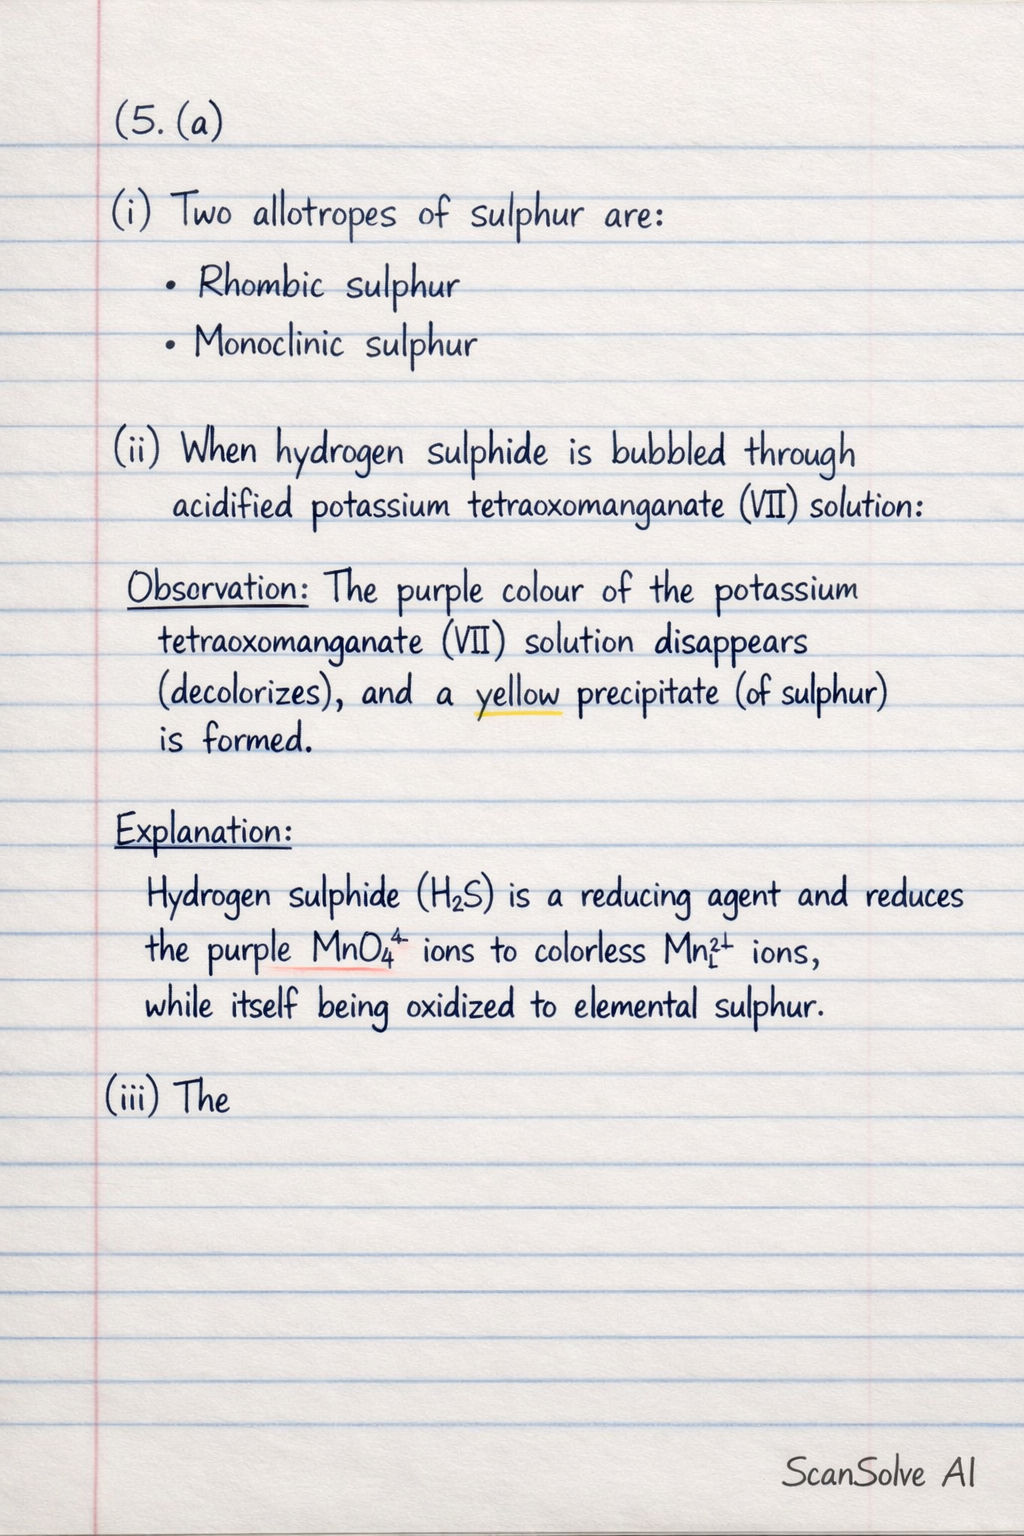 (5. (a)
(i) Two allotropes of sulphur are:
• Rhombic sulphur
• Monoclinic sulphur
(ii) When hydrogen sulphide is bubbled through
acidified potassium tetraoxomanganate (VII) solution:
Obsorvation: The purple colour of the potassium
tetraoxomanganate (VII) solution disappears
(decolorizes), and a yellow precipitate (of sulphur)
is formed.
Explanation:
Hydrogen sulphide (H₂S) is a reducing agent and reduces
the purple MnO₄⁴⁻ ions to colorless Mn²⁺ ions,
while itself being oxidized to elemental sulphur.
(iii) The
ScanSolve AI